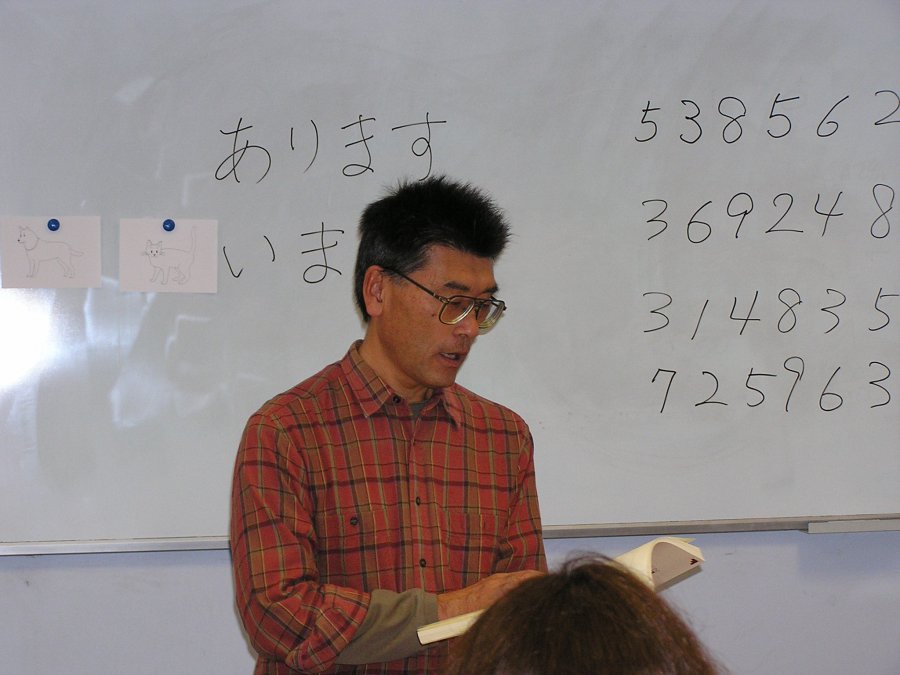 あります
いま
538562
369248
314835
725963